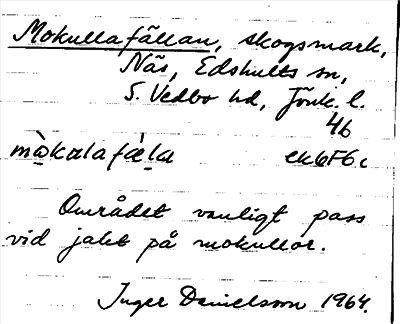 Mokullafällan, skogsmark,
Näs, Edshults sn,
S. Vedbo hd, Jönk. l.
46
mòkαlafǽla ek6F6c
Området vanligt pass
vid jakt på mokullor.
Inger Danielsson 1964.